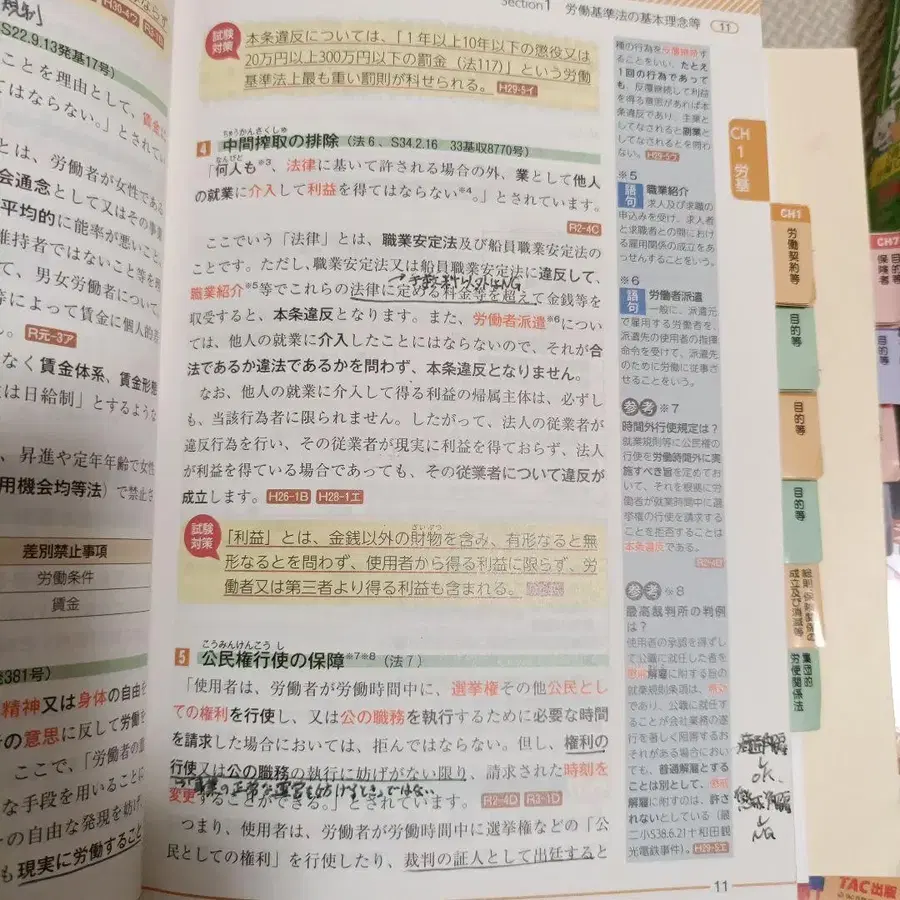 Section1 労働基準法の基本理念等 11
試験対策
本条違反については、「1年以上10年以下の懲役又は
20万円以上300万円以下の罰金(法117)」という労働
基準法上最も重い罰則が科せられる。H29-5イ
4 中間搾取の排除(法6、S34.2.16 33基収8770号)
ちゅうかんさくしゅ
なんぴと
「何人も※3、法律に基いて許される場合の外、業として他人
の就業に介入して利益を得てはならない※4。」とされています。
R2-4C
ここでいう「法律」とは、職業安定法及び船員職業安定法の
ことです。ただし、職業安定法又は船員職業安定法に違反して、
職業紹介※5等でこれらの法律に定める料金等を超えて金銭等を
収受すると、本条違反となります。また、労働者派遣※6につい
ては、他人の就業に介入したことにはならないので、それが合
法であるか違法であるかを問わず、本条違反となりません。
なお、他人の就業に介入して得る利益の帰属主体は、必ずし
も、当該行為者に限られません。したがって、法人の従業者が
違反行為を行い、その従業者が現実に利益を得ておらず、法人
が利益を得ている場合であっても、その従業者について違反が
成立します。H26-1B H28-1エ
試験対策
ざいぶつ
「利益」とは、金銭以外の財物を含み、有形なると無
形なるとを問わず、使用者から得る利益に限らず、労
働者又は第三者より得る利益も含まれる。
こうみんけんこうし
5 公民権行使の保障※7※8(法7)
「使用者は、労働者が労働時間中に、選挙権その他公民とし
ての権利を行使し、又は公の職務を執行するために必要な時間
を請求した場合においては、拒んではならない。但し、権利の
行使又は公の職務の執行に妨げがない限り、請求された時刻を
変更することができる。」とされています。R2-4D R3-1D
つまり、使用者は、労働者が労働時間中に選挙権などの「公
民としての権利」を行使したり、裁判の証人として出廷すると
11
種の行為を反覆継続す
ることをいい、たとえ
1回の行為であって
も、反覆継続して利益
を得る意思があれば本
条違反であり、主業と
してなされると副業と
してなされるとを問わ
ない。H29-5ウ
※5
語句 職業紹介
求人及び求職の
申込みを受け、求人者
と求職者との間におけ
る雇用関係の成立をあ
っせんすることをいう。
※6
語句 労働者派遣
一般に、派遣元
で雇用する労働者を、
派遣先の使用者の指揮
命令を受けて、派遣先
のために労働に従事さ
せることをいう。
参考※7
時間外行使規定は?
就業規則等に公民権の
行使を労働時間外に実
施すべき旨を定めてお
いて、それを根拠に労
働者が就業時間中に選
挙権の行使を請求する
ことを拒否することは
本条違反である。
参考※8
最高裁判所の判例
は?
使用者の承認を得ずし
て公職に就任した者を
懲戒解雇に附する旨の
就業規則条項は、無効
であり、公職に就任す
ることが会社業務の遂
行を著しく阻害するお
それがある場合におい
ても、普通解雇とする
ことは別として、懲戒
解雇に附するのは、許さ
れないとしている(最
二小S38.6.21十和田観
光電鉄事件)。H29-5エ
普通解雇
OK
懲戒解雇
NG
CH 1 労基
CH1
労働契約等
目的等
目的等
目的等
総則、保険関係の成立及び消滅等
集団的労使関係法
CH7
保険者
目的等
TAC出版
H30-4ウ
規制
S22.9.13発基17号)
ことを理由として、賃金に
てはならない。」とされてい
とは、労働者が女性である
会通念として又はその事業
平均的に能率が悪いこと
維持者ではないこと等を理
て、男女労働者について、
等によって賃金に個人的差
R元-3ア
なく賃金体系、賃金形態
性は日給制」とするような
、昇進や定年年齢で女性
用機会均等法)で禁止さ
差別禁止事項
労働条件
賃金
381号)
精神又は身体の自由を
の意思に反して労働を
ここで、「労働者の意
な手段を用いることに
の自由な発現を妨げ
も現実に労働すること